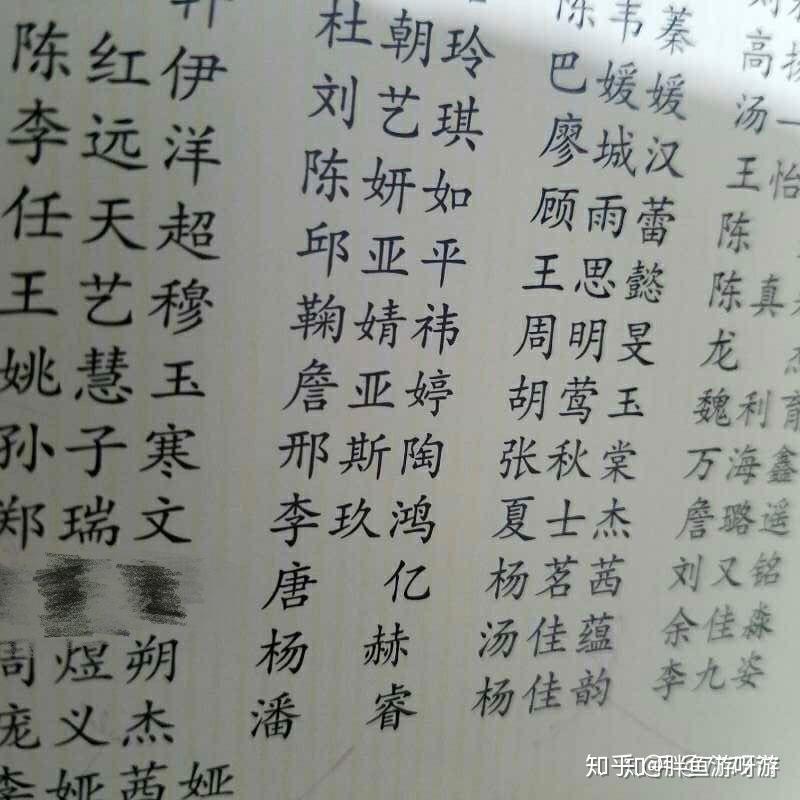 陈红伊
李远洋
任天超
王艺穆
姚慧玉
孙子寒
郑瑞文
周煜朔
庞义杰
李娅茜娅
杜朝玲
刘艺琪
陈妍如
邱亚平
鞠婧祎
詹亚婷
邢斯陶
李玖鸿
唐亿
杨赫
潘睿
陈韦蓁
巴媛媛
廖城汉
顾雨蕾
王思懿
周明旻
胡莺玉
张秋棠
夏士杰
杨茗茜
汤佳蕴
杨佳韵
高扬
汤一
王怡
陈
陈真
龙杰
魏利育
万海鑫
詹璐遥
刘又铭
余佳淼
李九姿